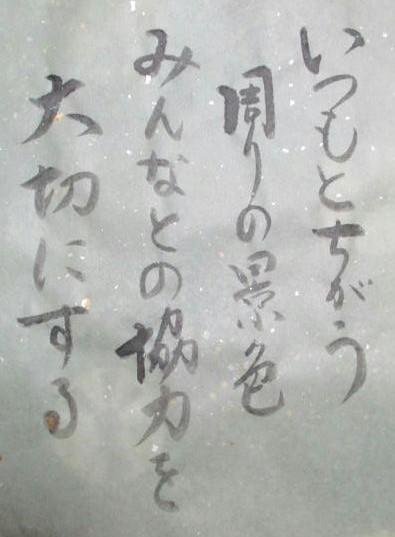 いつもとちがう
周りの景色
みんなとの協力を
大切にする